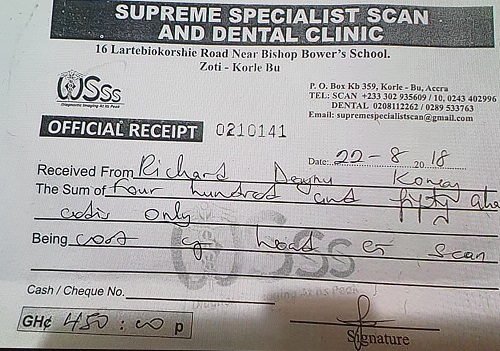 SUPREME SPECIALIST SCAN
AND DENTAL CLINIC
16 Lartebiokorshie Road Near Bishop Bower's School.
Zoti - Korle Bu
SSss
Diagnostic Imaging At Its Peak
P. O. Box Kb 359, Korle - Bu, Accra
TEL: SCAN +233 302 935609 / 10, 0243 402996
DENTAL 0208112262 / 0289 533763
Email: supremespecialistscan@gmail.com
OFFICIAL RECEIPT 0210141
Date: 22-8 20 18
Received From Richard
The Sum of Four hundred and fifty Gha
cedis only
Being cost of head CT scan
Cash / Cheque No.
GH¢ 450 : 00 p
Signature